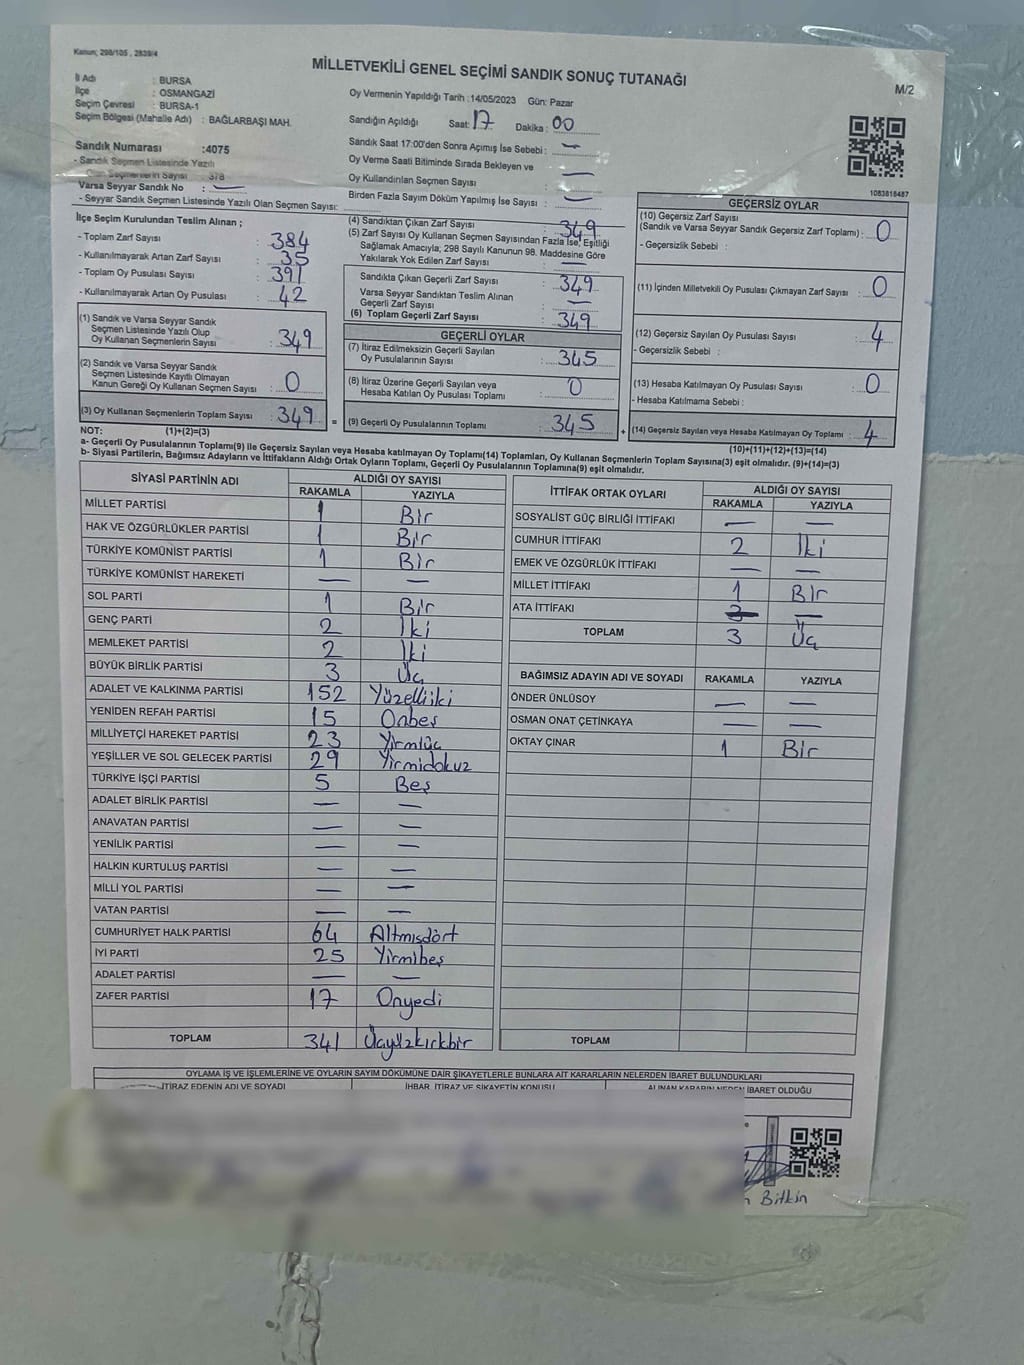 Kanun; 298/105 , 2839/4
MİLLETVEKİLİ GENEL SEÇİMİ SANDIK SONUÇ TUTANAĞI
M/2
İl Adı : BURSA
İlçe : OSMANGAZİ
Seçim Çevresi : BURSA-1
Seçim Bölgesi (Mahalle Adı) : BAĞLARBAŞI MAH.
Sandık Numarası :4075
- Sandık Seçmen Listesinde Yazılı
Olan Seçmenlerin Sayısı : 378
Varsa Seyyar Sandık No : —
- Seyyar Sandık Seçmen Listesinde Yazılı Olan Seçmen Sayısı:
Oy Vermenin Yapıldığı Tarih :14/05/2023 Gün: Pazar
Sandığın Açıldığı Saat: 17 Dakika : 00
Sandık Saat 17:00'den Sonra Açımış İse Sebebi : —
Oy Verme Saati Bitiminde Sırada Bekleyen ve
Oy Kullandırılan Seçmen Sayısı : —
Birden Fazla Sayım Döküm Yapılmış İse Sayısı : —
1083816487
İlçe Seçim Kurulundan Teslim Alınan ;
- Toplam Zarf Sayısı : 384
- Kullanılmayarak Artan Zarf Sayısı : 35
- Toplam Oy Pusulası Sayısı : 391
- Kullanılmayarak Artan Oy Pusulası : 42
(1) Sandık ve Varsa Seyyar Sandık
Seçmen Listesinde Yazılı Olup
Oy Kullanan Seçmenlerin Sayısı : 349
(2) Sandık ve Varsa Seyyar Sandık
Seçmen Listesinde Kayıtlı Olmayan
Kanun Gereği Oy Kullanan Seçmen Sayısı : 0
(3) Oy Kullanan Seçmenlerin Toplam Sayısı : 349 =
(4) Sandıktan Çıkan Zarf Sayısı : 349
(5) Zarf Sayısı Oy Kullanan Seçmen Sayısından Fazla İse, Eşitliği
Sağlamak Amacıyla, 298 Sayılı Kanunun 98. Maddesine Göre
Yakılarak Yok Edilen Zarf Sayısı : —
Sandıkta Çıkan Geçerli Zarf Sayısı : 349
Varsa Seyyar Sandıktan Teslim Alınan
Geçerli Zarf Sayısı : —
(6) Toplam Geçerli Zarf Sayısı : 349
GEÇERLİ OYLAR
(7) İtiraz Edilmeksizin Geçerli Sayılan
Oy Pusulalarının Sayısı : 345
(8) İtiraz Üzerine Geçerli Sayılan veya
Hesaba Katılan Oy Pusulası Toplamı : 0
(9) Geçerli Oy Pusulalarının Toplamı : 345 +
GEÇERSİZ OYLAR
(10) Geçersiz Zarf Sayısı
(Sandık ve Varsa Seyyar Sandık Geçersiz Zarf Toplamı) : 0
- Geçersizlik Sebebi :
(11) İçinden Milletvekili Oy Pusulası Çıkmayan Zarf Sayısı : 0
(12) Geçersiz Sayılan Oy Pusulası Sayısı : 4
- Geçersizlik Sebebi :
(13) Hesaba Katılmayan Oy Pusulası Sayısı : 0
- Hesaba Katılmama Sebebi :
(14) Geçersiz Sayılan veya Hesaba Katılmayan Oy Toplamı : 4
NOT: (1)+(2)=(3) (10)+(11)+(12)+(13)=(14)
a- Geçerli Oy Pusulalarının Toplamı(9) ile Geçersiz Sayılan veya Hesaba katılmayan Oy Toplamı(14) Toplamları, Oy Kullanan Seçmenlerin Toplam Sayısına(3) eşit olmalıdır. (9)+(14)=(3)
b- Siyasi Partilerin, Bağımsız Adayların ve İttifakların Aldığı Ortak Oyların Toplamı, Geçerli Oy Pusulalarının Toplamına(9) eşit olmalıdır.
SİYASİ PARTİNİN ADI ALDIĞI OY SAYISI
RAKAMLA YAZIYLA
MİLLET PARTİSİ 1 Bir
HAK VE ÖZGÜRLÜKLER PARTİSİ 1 Bir
TÜRKİYE KOMÜNİST PARTİSİ 1 Bir
TÜRKİYE KOMÜNİST HAREKETİ — —
SOL PARTİ 1 Bir
GENÇ PARTİ 2 İki
MEMLEKET PARTİSİ 2 İki
BÜYÜK BİRLİK PARTİSİ 3 Üç
ADALET VE KALKINMA PARTİSİ 152 Yüzelliiki
YENİDEN REFAH PARTİSİ 15 Onbeş
MİLLİYETÇİ HAREKET PARTİSİ 23 Yirmiüç
YEŞİLLER VE SOL GELECEK PARTİSİ 29 Yirmidokuz
TÜRKİYE İŞÇİ PARTİSİ 5 Beş
ADALET BİRLİK PARTİSİ — —
ANAVATAN PARTİSİ — —
YENİLİK PARTİSİ — —
HALKIN KURTULUŞ PARTİSİ — —
MİLLİ YOL PARTİSİ — —
VATAN PARTİSİ — —
CUMHURİYET HALK PARTİSİ 64 Altmışdört
İYİ PARTİ 25 Yirmibeş
ADALET PARTİSİ — —
ZAFER PARTİSİ 17 Onyedi
TOPLAM 341 Üçyüzkırkbir
İTTİFAK ORTAK OYLARI ALDIĞI OY SAYISI
RAKAMLA YAZIYLA
SOSYALİST GÜÇ BİRLİĞİ İTTİFAKI — —
CUMHUR İTTİFAKI 2 İki
EMEK VE ÖZGÜRLÜK İTTİFAKI — —
MİLLET İTTİFAKI 1 Bir
ATA İTTİFAKI — —
TOPLAM 3 Üç
BAĞIMSIZ ADAYIN ADI VE SOYADI RAKAMLA YAZIYLA
ÖNDER ÜNLÜSOY — —
OSMAN ONAT ÇETİNKAYA — —
OKTAY ÇINAR 1 Bir
TOPLAM
OYLAMA İŞ VE İŞLEMLERİNE VE OYLARIN SAYIM DÖKÜMÜNE DAİR ŞİKAYETLERLE BUNLARA AİT KARARLARIN NELERDEN İBARET BULUNDUKLARI
İTİRAZ EDENİN ADI VE SOYADI İHBAR, İTİRAZ VE ŞİKAYETİN KONUSU ALINAN KARARIN NEDEN İBARET OLDUĞU
Bitkin